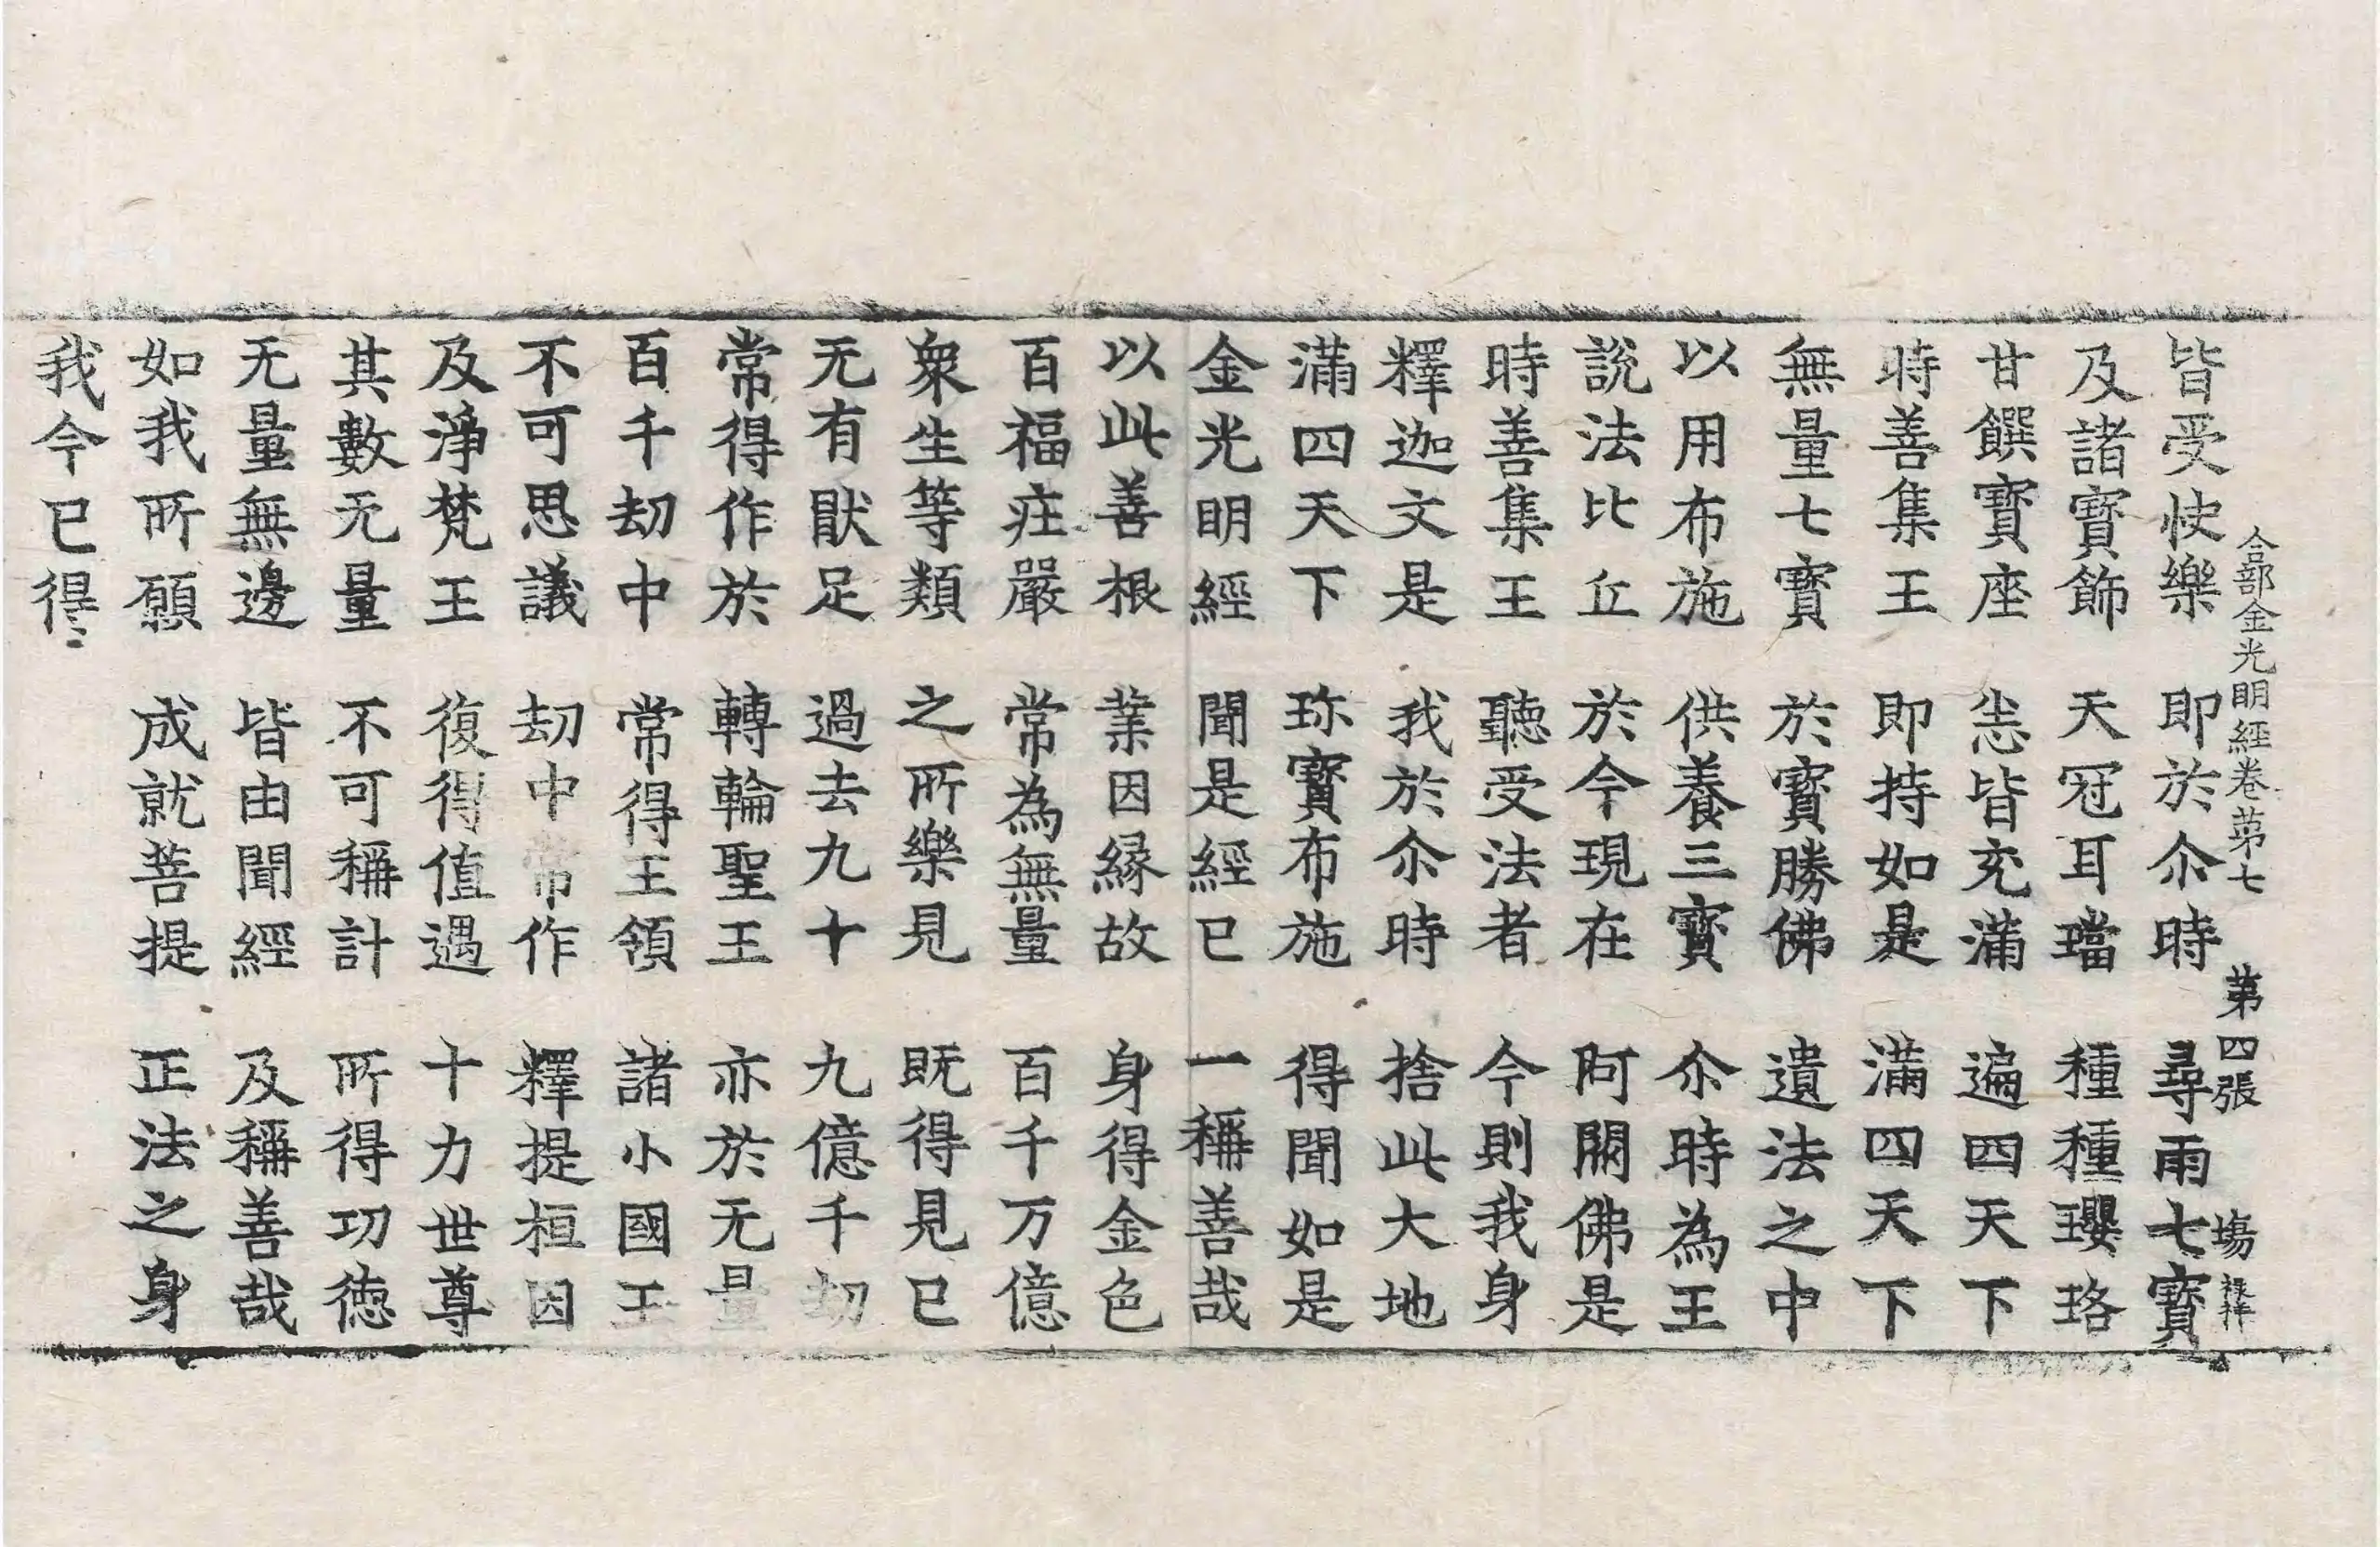 合部金光明經卷苐七　苐四張　塲　禄祥
皆受快樂　即於尒時　尋雨七寳
及諸寳飾　天冠耳璫　種種瓔珞
甘饌寳座　悉皆充滿　遍四天下
時善集王　即持如是　滿四天下
無量七寳　於寳勝佛　遺法之中
以用布施　供養三寳　尒時為王
說法比丘　於今現在　阿閦佛是
時善集王　聽受法者　今則我身
釋迦文是　我於尒時　捨此大地
滿四天下　珎寳布施　得聞如是
金光明經　聞是經已　一稱善哉
以此善根　業因縁故　身得金色
百福疘嚴　常為無量　百千万億
衆生等類　之所樂見　既得見已
无有猒足　過去九十　九億千劫
常得作於　轉輪聖王　亦於无量
百千劫中　常得王領　諸小國王
不可思議　劫中常作　釋提桓因
及淨梵王　復得值遇　十力世尊
其數无量　不可稱計　所得功徳
无量無邊　皆由聞經　及稱善哉
如我所願　成就菩提　正法之身
我今已得